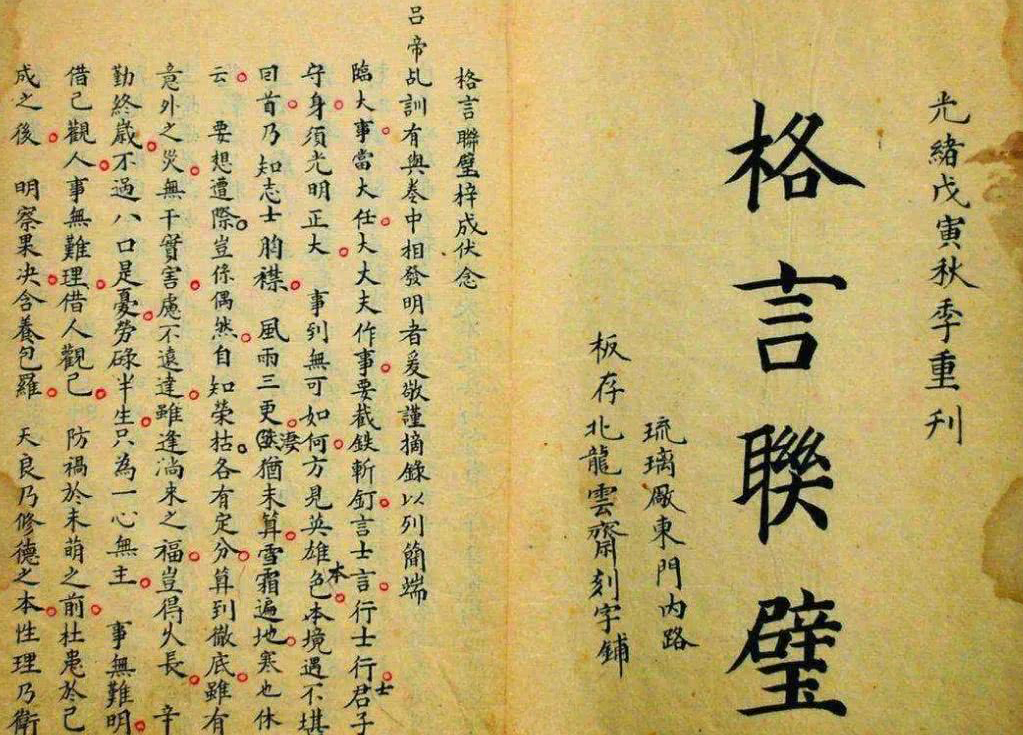 光緒戊寅秋季重刊
格言聯璧
琉璃厰東門内路
板存北龍雲齋刻字鋪
格言聯璧梓成伏念
呂帝乩訓有與卷中相發明者爰敬謹摘錄以列簡端
臨大事當大任大大夫作事要截鉄斬釘言士言行士行君子
士
守身須光明正大 事到無可如何方見英雄色本境遇不堪
本
回首乃知志士胷襟 風雨三更淒猶未算雪霜遍地寒也休
云 要想遭際豈係偶然自知榮枯各有定分算到徹底雖有
意外之災無干實害慮不遠達雖逢淌来之福豈得久長 辛
勤終歲不過八口是憂勞碌半生只為一心無主 事無難明
借己觀人事無難理借人觀己 防禍於未萌之前杜患於己
成之後 明察果决含養包羅 天良乃修德之本性理乃衛